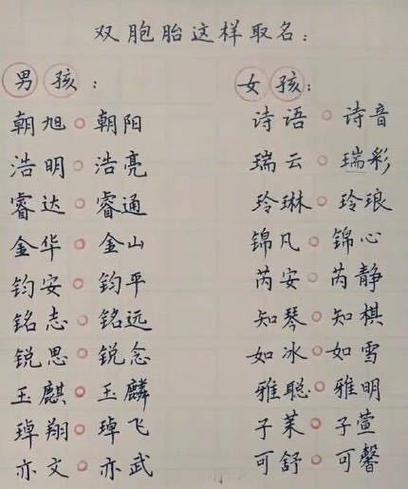 双胞胎这样取名：
男孩： 女孩：
朝旭○朝阳 诗语○诗音
浩明○浩亮 瑞云○瑞彩
睿达○睿通 玲琳○玲琅
金华○金山 锦凡○锦心
钧安○钧平 芮安○芮静
铭志○铭远 知琴○知棋
锐思○锐念 如冰○如雪
玉麒○玉麟 雅聪○雅明
琸翔○琸飞 子茉○子萱
亦文○亦武 可舒○可馨